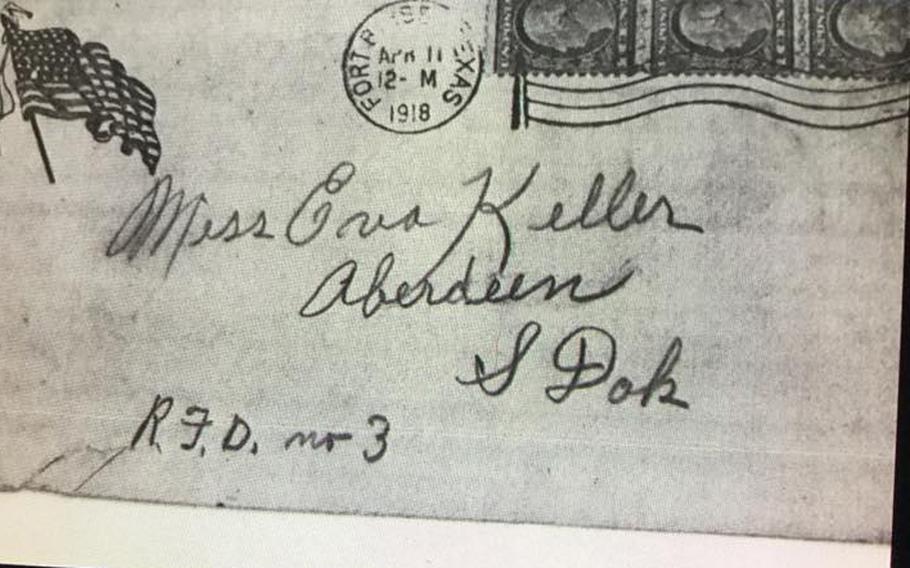 FORT
TEXAS
APR 11
12- M
1918
Miss Eva Keller
Aberdeen
S Dak
R.F.D. no 3